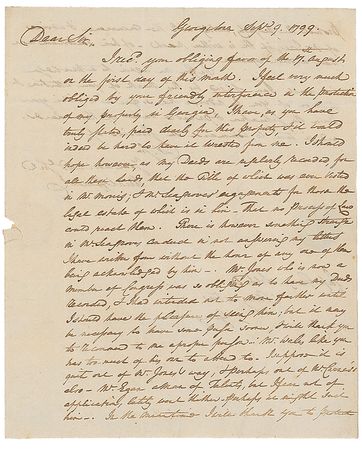 Georgetown Sept. 9. 1799.
Dear Sir,
I recd. your obliging favor of the 17th August
on the first day of this month. I feel very much
obliged by your friendly interference in the protection
of my property in Georgia, I have, as you have
truly stated, paid dearly for this property & it would
indeed be hard to have it wrested from me. I should
hope however, as my Deeds are regularly recorded, for
all these lands, that the Title of which was once vested
in Mr. Morris, & Mr. Seagroves' for those the
legal estate of which is in him - that no process of Law
could reach them. There is however something strange
in Mr. Seagroves conduct in not answering my letters
I have written four without the honor of any one of them
being acknowledged by him -. Mr. Jones who is now a
member of Congress was so obliging as to have my Deeds
recorded, & I had intended not to move further until
I should have the pleasure of seeing him, but it may
be necessary to have some person soon, I will thank you
to recommend to me a proper person. Mr. Wells, like you
has too much of his own to attend to. I suppose it is
quite out of Mr. Jones's way, & perhaps out of
also - Mr. Egan a Man of Talents, but I fear not of
application, lately went thither. Perhaps he might suit
him -. In the meantime I will thank you to